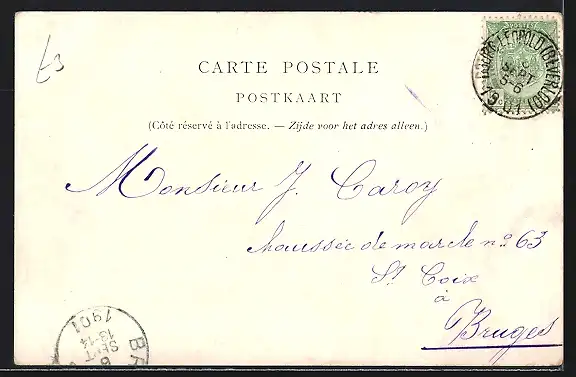 £3
CARTE POSTALE
POSTKAART
(Côté réservé à l'adresse. — Zijde voor het adres alleen.)
BOURG-LEOPOLD (BEVERLOO)
SEPT
1901
Monsieur J. Caroy
chaussée de marcle nº 63
St Coix
à
Bruges
1901
13-14
SEPT
6
BR